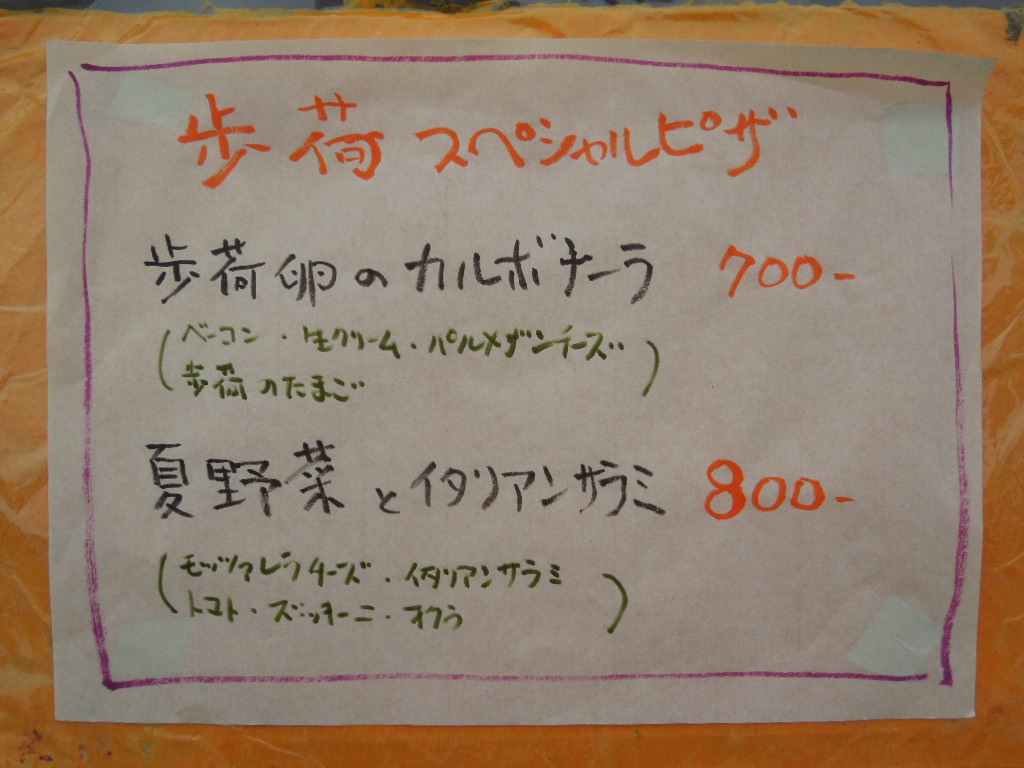 歩荷 スペシャルピザ
歩荷卵のカルボナーラ 700-
(ベーコン・生クリーム・パルメザンチーズ
歩荷のたまご)
夏野菜とイタリアンサラミ 800-
(モッツァレラチーズ・イタリアンサラミ
トマト・ズッキーニ・オクラ)